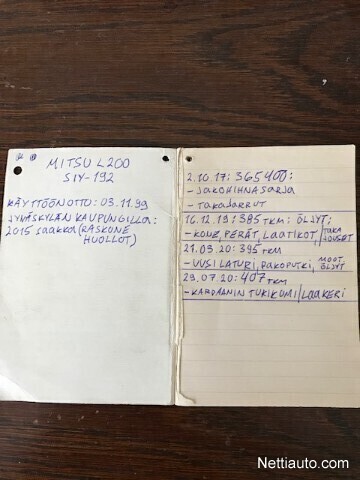 MITSU L200
SIY-192
KÄYTTÖÖNOTTO: 03.11.99
JYVÄSKYLÄN KAUPUNGILLA:
2015 SAAKKA (RASKONE
HUOLLOT)
2.10.17: 365400:
- JAKOHIHNASARJA
- TAKAJARRUT
16.12.19: 385 TKM: ÖLJYT:
- KONE, PERÄT, LAATIKOT / TAKA
21.03.20: 395 TKM
- UUSI LATURI, PAKOPUTKI, MOOT.
ÖLJYT
29.07.20: 407 TKM
- KARDAANIN TUKIKUMI / LAAKERI
Nettiauto.com